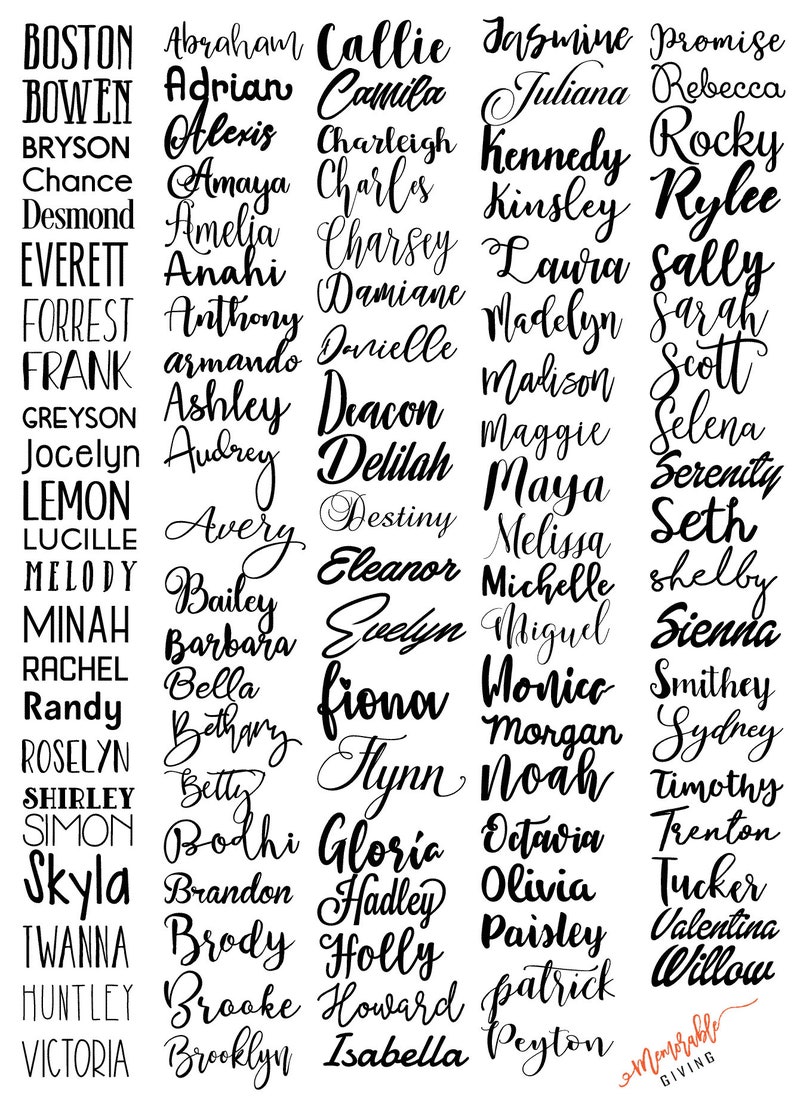 BOSTON
BOWEN
BRYSON
Chance
Desmond
EVERETT
FORREST
FRANK
GREYSON
Jocelyn
LEMON
LUCILLE
MELODY
MINAH
RACHEL
Randy
ROSELYN
SHIRLEY
SIMON
Skyla
TWANNA
HUNTLEY
VICTORIA
Abraham
Adrian
Alexis
Amaya
Amelia
Anahi
Anthony
armando
Ashley
Audrey
Avery
Bailey
Barbara
Bella
Bethany
Betty
Bodhi
Brandon
Brody
Brooke
Brooklyn
Callie
Camila
Charleigh
Charles
Charsey
Damiane
Danielle
Deacon
Delilah
Destiny
Eleanor
Evelyn
fiona
Flynn
Gloria
Hadley
Holly
Howard
Isabella
Jasmine
Juliana
Kennedy
Kinsley
Laura
Madelyn
Madison
Maggie
Maya
Melissa
Michelle
Miguel
Monica
Morgan
Noah
Octavia
Olivia
Paisley
patrick
Peyton
Promise
Rebecca
Rocky
Rylee
sally
Sarah
Scott
Selena
Serenity
Seth
shelby
Sienna
Smithey
Sydney
Timothy
Trenton
Tucker
Valentina
Willow
Memorable
GIVING